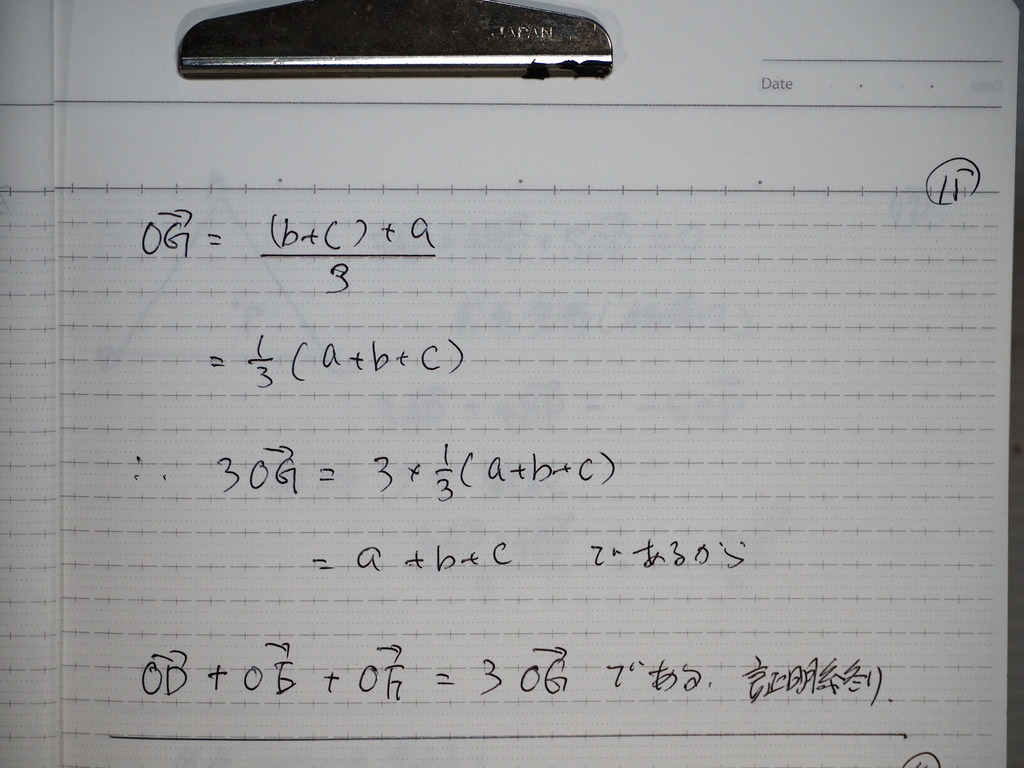 JAPAN
Date
15
$\overrightarrow{OG} = \frac{(b+c)+a}{3}$
$= \frac{1}{3}(a+b+c)$
$\therefore 3\overrightarrow{OG} = 3 \times \frac{1}{3}(a+b+c)$
$= a+b+c$ であるから
$\overrightarrow{OD} + \overrightarrow{OE} + \overrightarrow{OF} = 3\overrightarrow{OG}$ である. 証明終り.